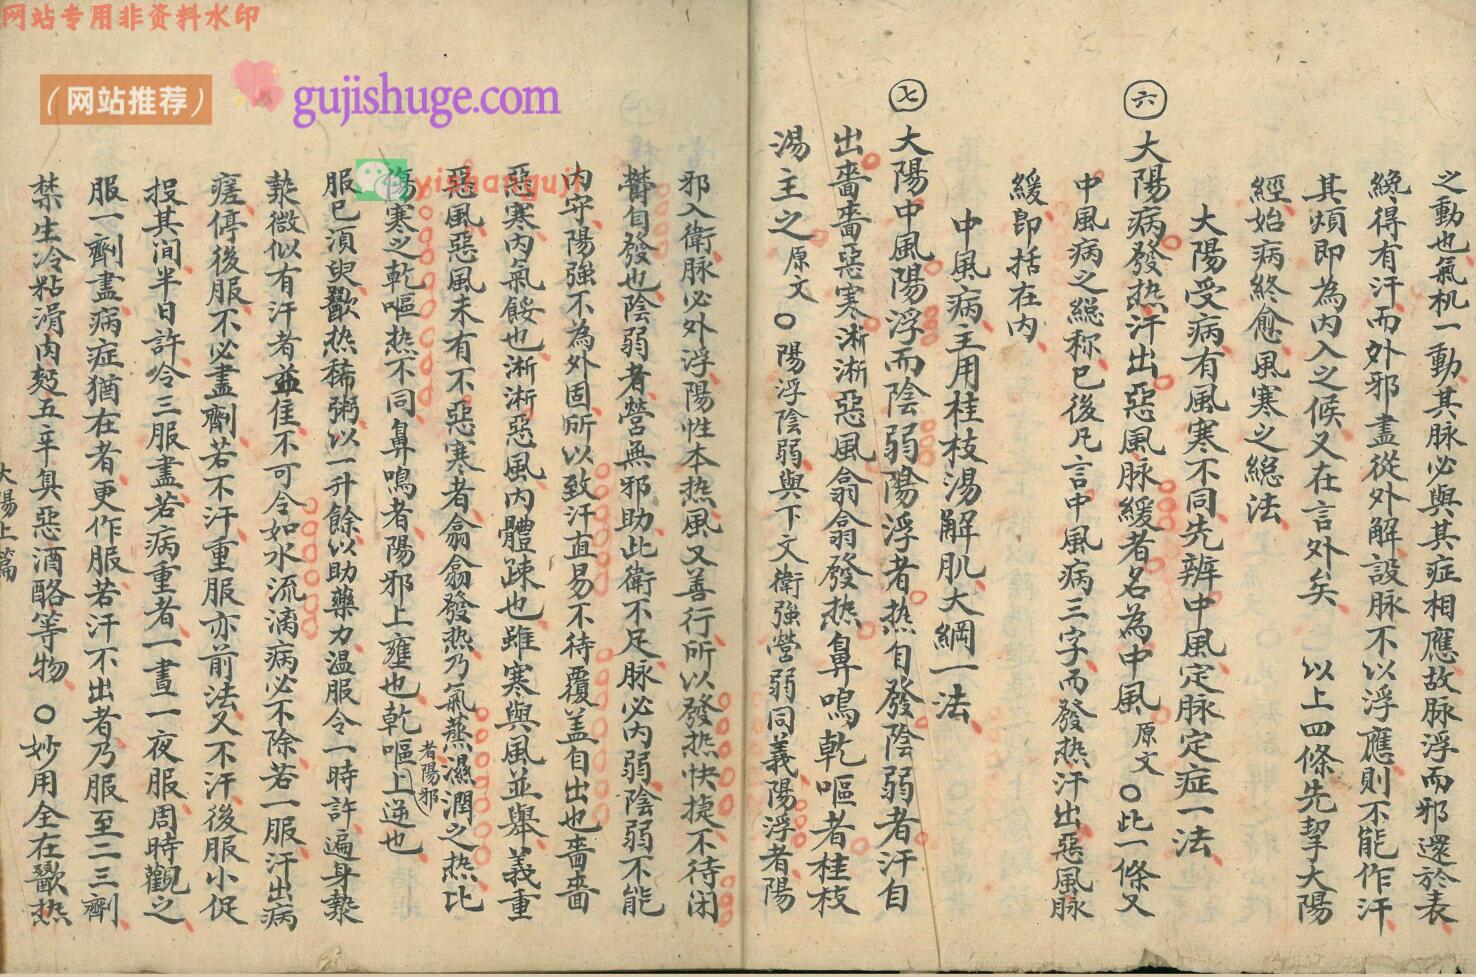 网站专用非资料水印
(网站推荐)
gujishuge.com
yishanguji
之動也氣机一動其脉必與其症相應故脉浮而邪還於表
纔得有汗而外邪盡從外解設脉不以浮應則不能作汗
其煩即為内入之候又在言外矣 以上四條先挈大陽
經始病終愈風寒之総法
大陽受病有風寒不同先辨中風定脉定症一法
六
大陽病發热汗出惡風脉緩者名為中風原文○此一條又
中風病之総称已後凡言中風病三字而發热汗出惡風脉
緩即括在内
中風病主用桂枝湯解肌大綱一法
七
大陽中風陽浮而陰弱陽浮者热自發陰弱者汗自
出嗇嗇惡寒淅淅惡風翕翕發热鼻鳴乾嘔者桂枝
湯主之原文○陽浮陰弱與下文衛強营弱同義陽浮者陽
邪入衛脉必外浮陽性本热風又善行所以發热快捷不待闭
鬱自發也陰弱者营無邪助此衛不足脉必内弱陰弱不能
内守陽強不為外固所以致汗直易不待覆盖自出也嗇嗇
惡寒内氣餒也淅淅惡風内體疎也雖寒與風並舉義重
惡風惡風未有不惡寒者翕翕發热乃氣蒸濕潤之热比
傷寒之乾嘔热不同鼻鳴者陽邪上壅也乾嘔者陽邪上逆也
服已湏臾歠热稀粥以一升餘以助藥力温服令一時許遍身漐
漐微似有汗者益佳不可令如水流漓病必不除若一服汗出病
瘥停後服不必盡劑若不汗重服亦前法又不汗後服小促
投其间半日許令三服盡若病重者一晝一夜服周時觀之
服一劑盡病症猶在者更作服若汗不出者乃服至二三劑
禁生冷粘滑肉麪五辛臭惡酒酪等物 ○妙用全在歠热
大陽上篇